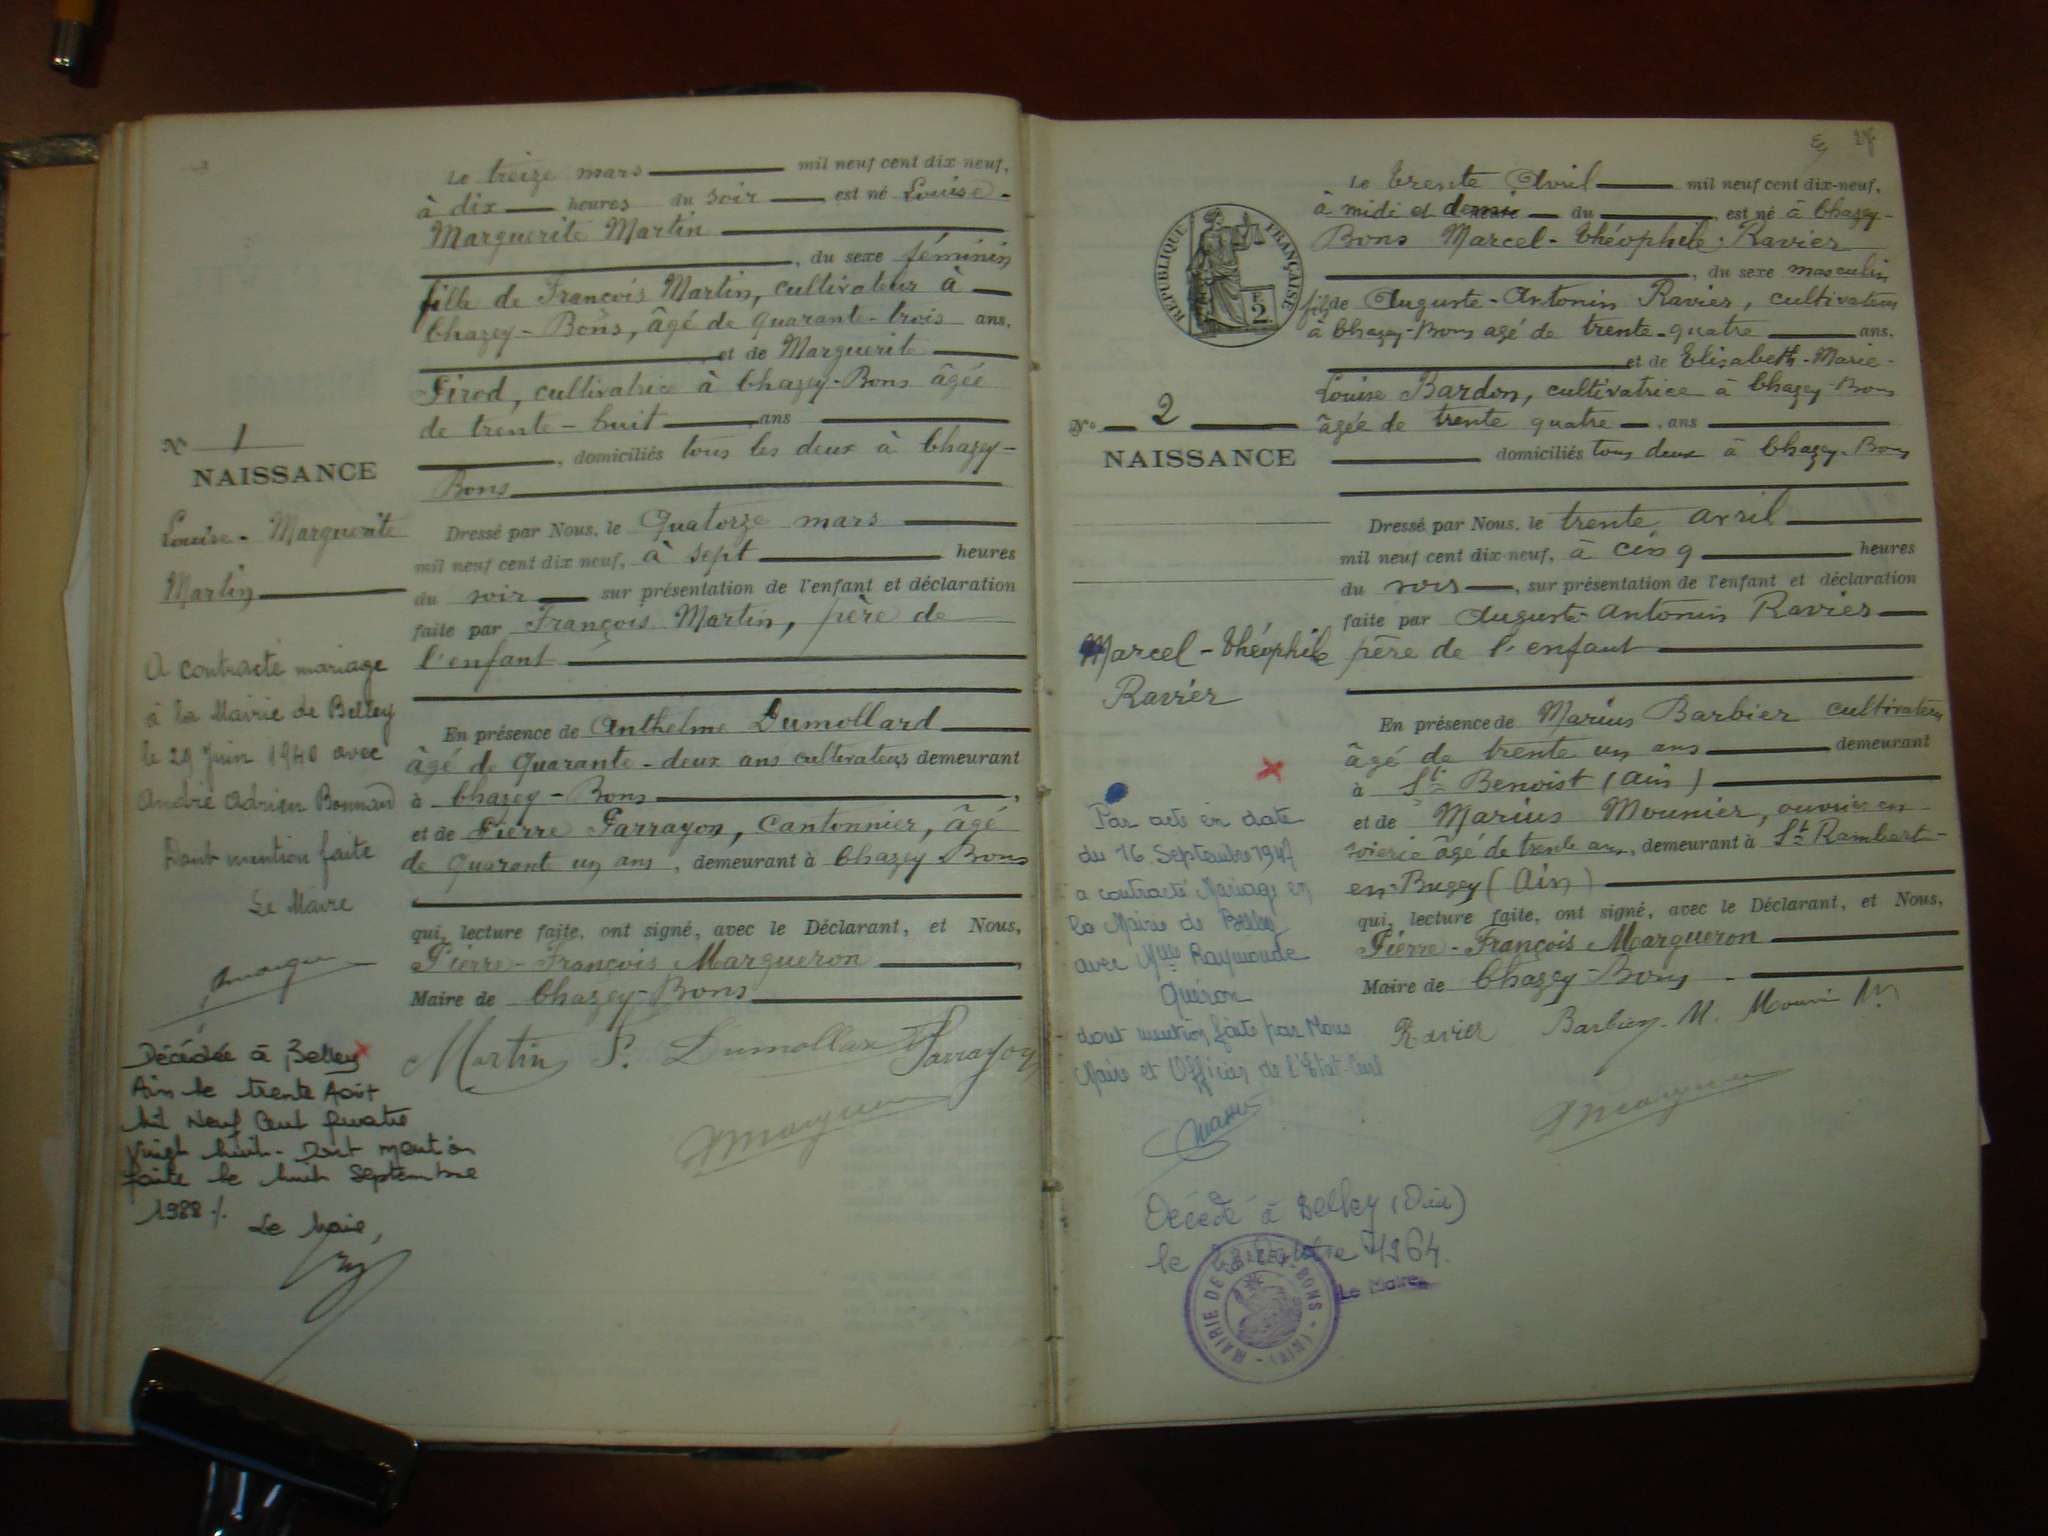 Le treize mars mil neuf cent dix neuf,
à dix heures du soir, est né Louise-
Marguerite Martin
, du sexe féminin
fille de François Martin, cultivateur à
Chazey-Bons, âgé de quarante-trois ans,
et de Marguerite
Pirod, cultivatrice à Chazey-Bons âgée
de trente-huit ans
, domiciliés tous les deux à Chazey-
Bons
N° 1
NAISSANCE
Louise-Marguerite
Martin
Dressé par Nous, le Quatorze mars
mil neuf cent dix neuf, à sept heures
du soir sur présentation de l'enfant et déclaration
faite par François Martin, père de
l'enfant
En présence de Anthelme Dumollard
âgé de Quarante-deux ans cultivateurs demeurant
à Chazey-Bons,
et de Pierre Parrayon, Cantonnier, âgé
de Quarant un ans, demeurant à Chazey Bons
qui, lecture faite, ont signé, avec le Déclarant, et Nous,
Pierre-François Margueron,
Maire de Chazey-Bons
Martin F. Dumollard Parrayon
A contracté mariage
à la Mairie de Belley
le 29 Juin 1940 avec
André Adrien Bonnard
Dont mention faite
Le Maire
Décédée à Belley
Ain le trente Août
Mil Neuf Cent quatre
Vingt huit - Dont mention
faite le huit Septembre
1988 ./.
Le Maire,
27
Le trente Avril mil neuf cent dix-neuf,
à midi et demie du, est né à Chazey-
Bons Marcel-Théophile Ravier
, du sexe masculin
fils de Auguste-Antonin Ravier, cultivateur
à Chazey-Bons agé de trente-quatre ans.
et de Elisabeth-Marie-
Louise Bardon, cultivatrice à Chazey-Bons
âgée de trente quatre, ans
domiciliés tous deux à Chazey-Bons
REPUBLIQUE FRANÇAISE
2
N° 2
NAISSANCE
Marcel-Théophile
Ravier
Dressé par Nous, le trente avril
mil neuf cent dix-neuf, à cinq heures
du soir, sur présentation de l'enfant et déclaration
faite par Auguste-Antonin Ravier
père de l'enfant
En présence de Marius Barbier cultivateur
âgé de trente un ans demeurant
à St Benoist (Ain)
et de Marius Mounier, ouvrier en
soierie âgé de trente ans, demeurant à St Rambert-
en-Bugey (Ain)
qui, lecture faite, ont signé, avec le Déclarant, et Nous,
Pierre-François Margueron
Maire de Chazey-Bons
Ravier Barbier M. Mounier M.
Par acte en date
du 16 Septembre 1947
a contracté Mariage en
la Mairie de Belley
avec Mlle Raymonde
dont mention faite par Nous
Maire et Officier de l'Etat-Civil
Décédé à Belley (Ain)
le Octobre 1964.
Le Maire
MAIRIE DE CHAZEY-BONS - (AIN) -